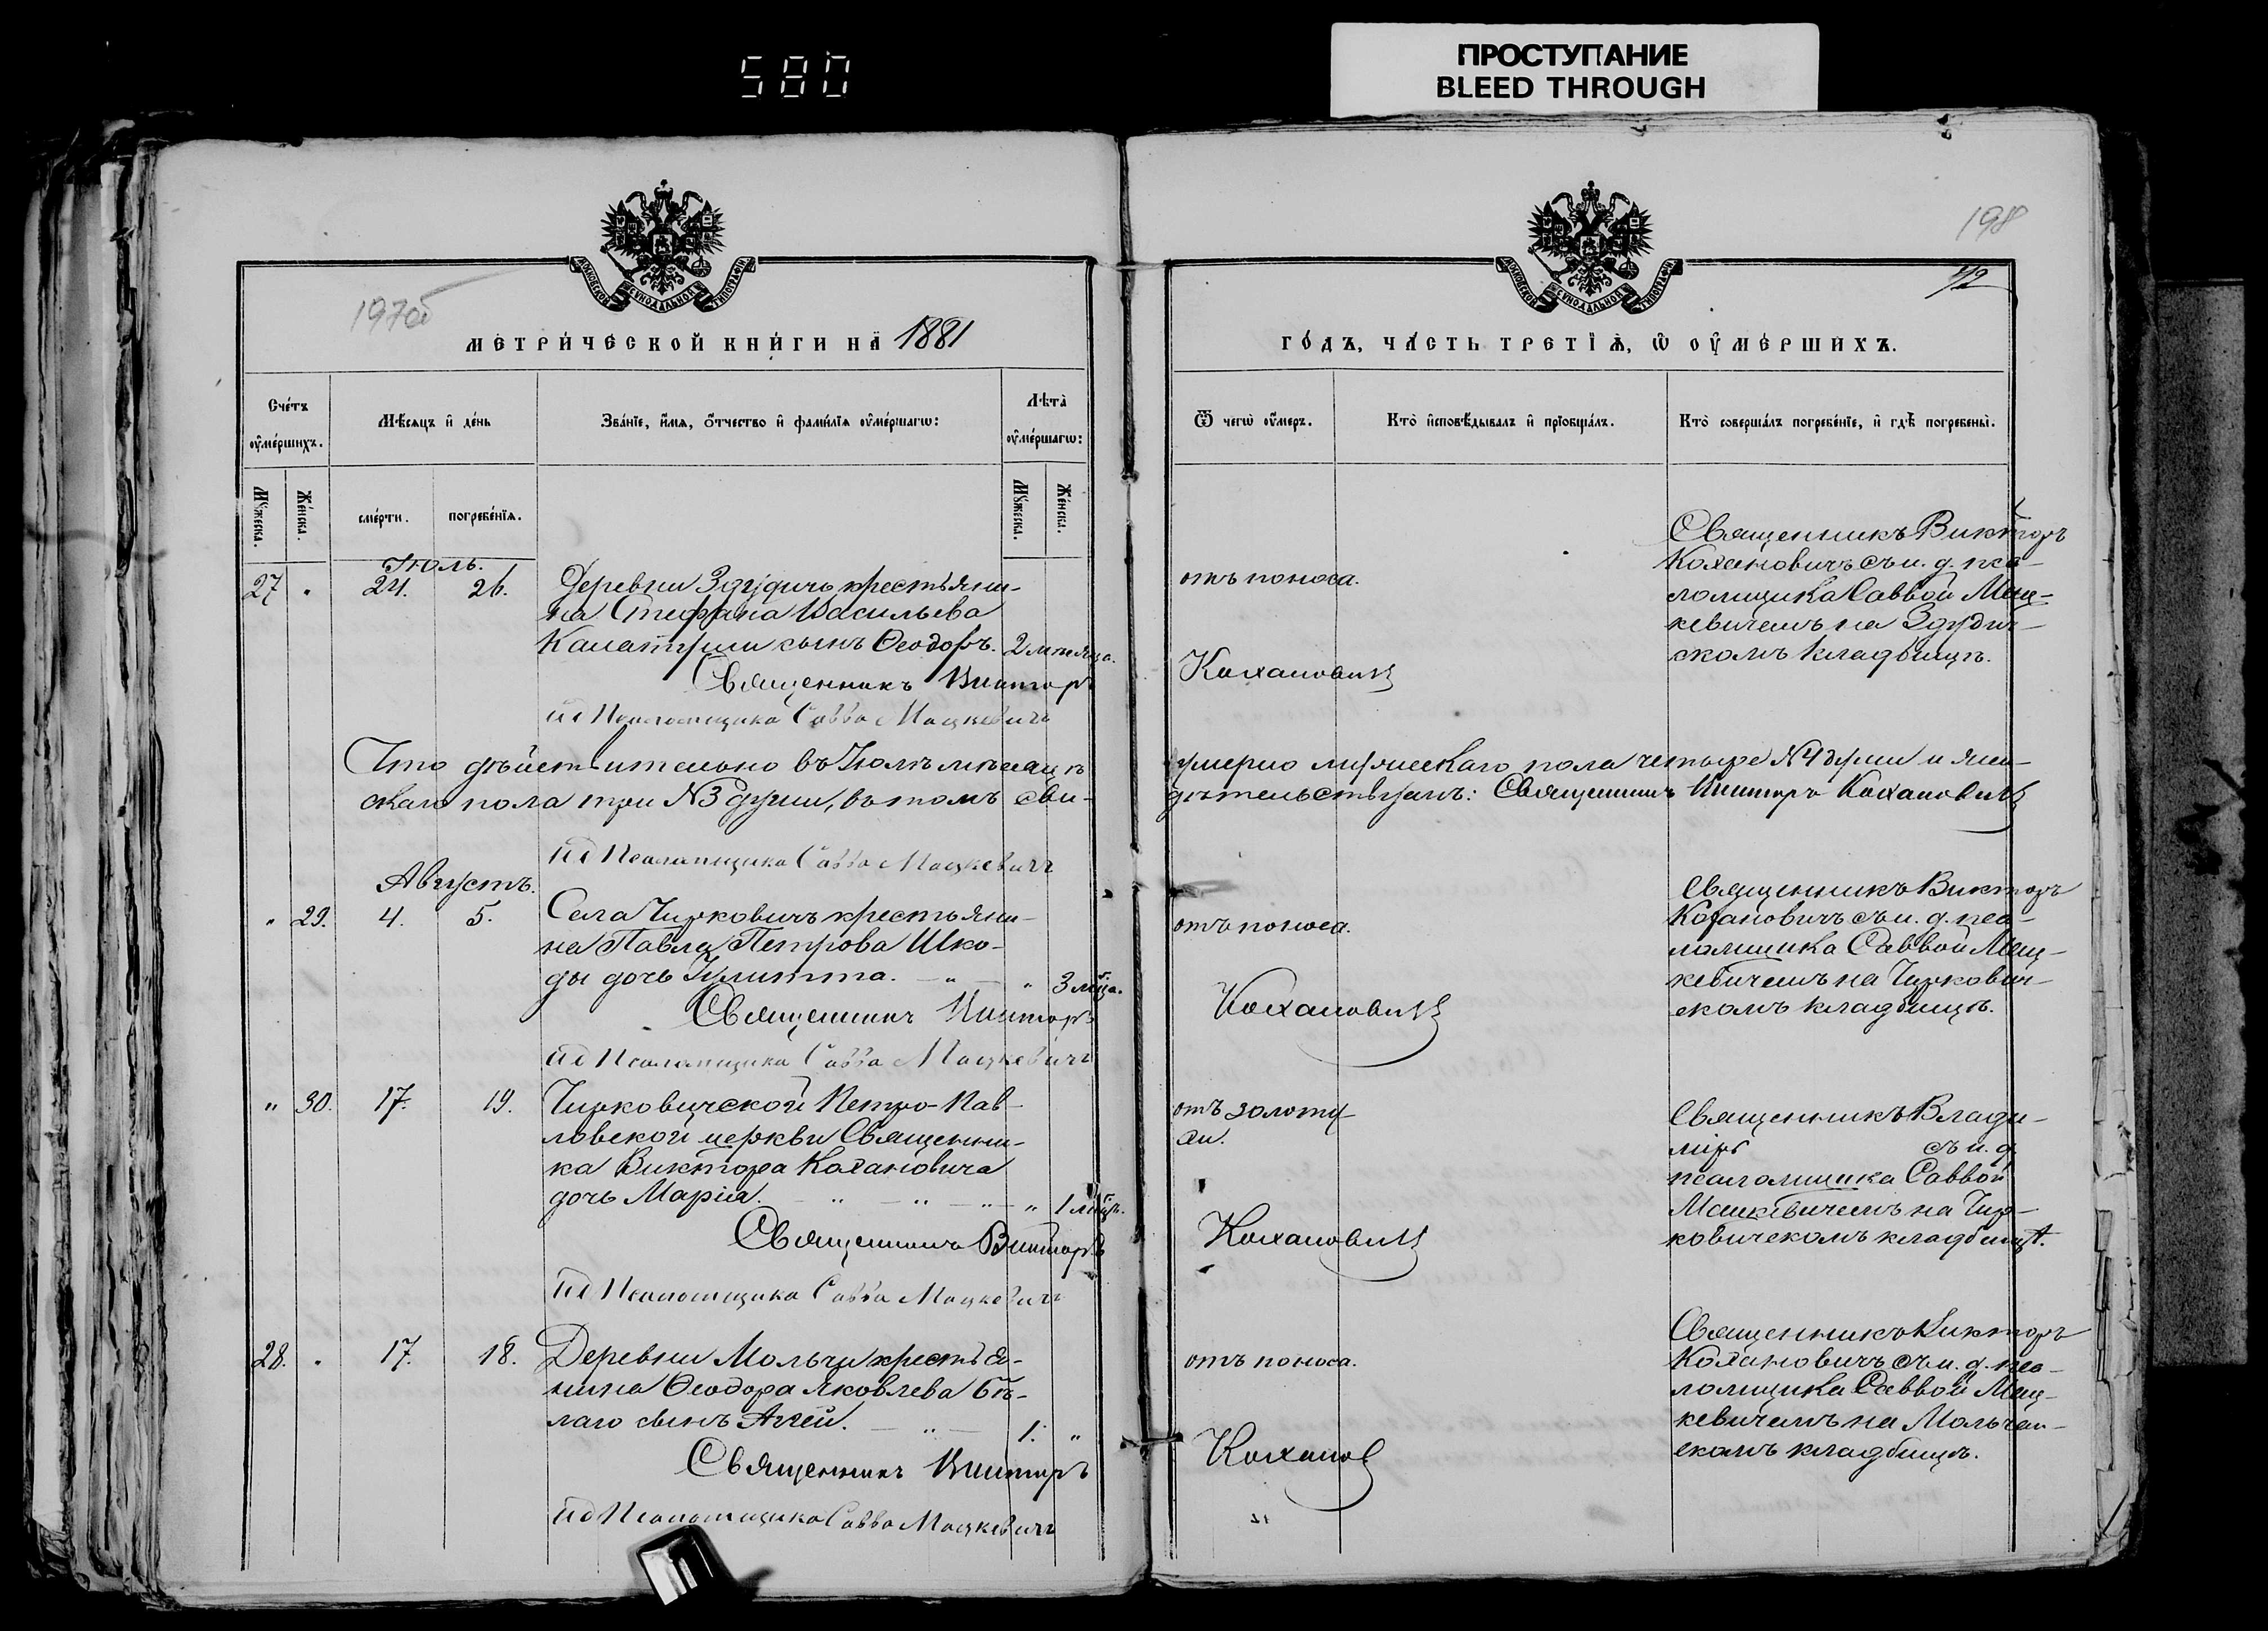 ПРОСТУПАНИЕ
BLEED THROUGH
580
197об
198
42
МЕТРИ́ЧЕСКОЙ КНИ́ГИ НА 1881
ГО́ДЪ, ЧА́СТЬ ТРЕ́ТІѦ, Ѡ ОУМЕ́РШИХЪ.
МОСКОВСКОЙ СѴНОДАЛЬНОЙ ТИПОГРАФІИ
МОСКОВСКОЙ СѴНОДАЛЬНОЙ ТИПОГРАФІИ
Сче́тъ оумє́ршихъ.
Мѣ́сѧцъ и де́нь
Зва́нїе, и́мѧ, о́тчество и фами́лїѧ оумє́ршагѡ:
Лѣта̀ оумє́ршагѡ:
Ѿ чегѡ̀ оу́меръ.
Кто̀ и҆сповѣ́дывалъ и прїобща́лъ.
Кто̀ соверша́лъ погребе́нїе, и гдѣ̀ погребены̀.
Мꙋ́жеска.
Же́нска.
сме́рти.
погребе́нїѧ.
Мꙋ́жеска.
Же́нска.
Іюль.
27 " 24. 26. Деревни Здудичъ крестьяни-
на Стефана Васильева
сынъ Ѳеодоръ. 2 мѣсяца.
Священникъ Викторъ
ид Псаломщика Савва Мацкевичъ
отъ поноса.
Кохановичъ
Священникъ Викторъ
Кохановичъ съ и. д. пса-
ломщика Саввой Мац-
кевичемъ на Здудич-
скомъ кладбищѣ.
Что дѣйствительно въ Іюлѣ мѣсяцѣ умерло мужескаго пола четыре №4 души и жен-
скаго пола три №3 души, въ томъ сви- дѣтельствуемъ: Священникъ Викторъ Кохановичъ
ид Псаломщика Савва Мацкевичъ
Августъ.
" 29. 4. 5. Села Чирковичъ крестьяни-
на Павла Петрова Шко-
ды дочь Іулитта. " " 3 мѣс҃ца.
Священникъ Викторъ
ид Псаломщика Савва Мацкевичъ
отъ поноса.
Кохановичъ
Священникъ Викторъ
Кохановичъ съ и. д. пса-
ломщика Саввой Мац-
кевичемъ на Чиркович-
скомъ кладбищѣ.
" 30. 17. 19. Чирковичской Петро-Пав-
ловской церкви Священни-
ка Виктора Кохановича
дочь Марія. " " " " 1 мѣс҃цъ.
Священникъ Викторъ
ид Псаломщика Савва Мацкевичъ
отъ золоту-
хи.
Кохановичъ
Священникъ Влади-
міръ съ и. д.
псаломщика Саввой
Мацкевичемъ на Чир-
ковичскомъ кладбищѣ.
28. " 17. 18. Деревни Мольчи крестья-
нина Ѳеодора Яковлева Бѣ-
лаго сынъ Аггей. " 1. "
Священникъ Викторъ
ид Псаломщика Савва Мацкевичъ
отъ поноса.
Коханов
Священникъ Викторъ
Кохановичъ съ и. д. пса-
ломщика Саввой Мац-
кевичемъ на Мольчан-
скомъ кладбищѣ.